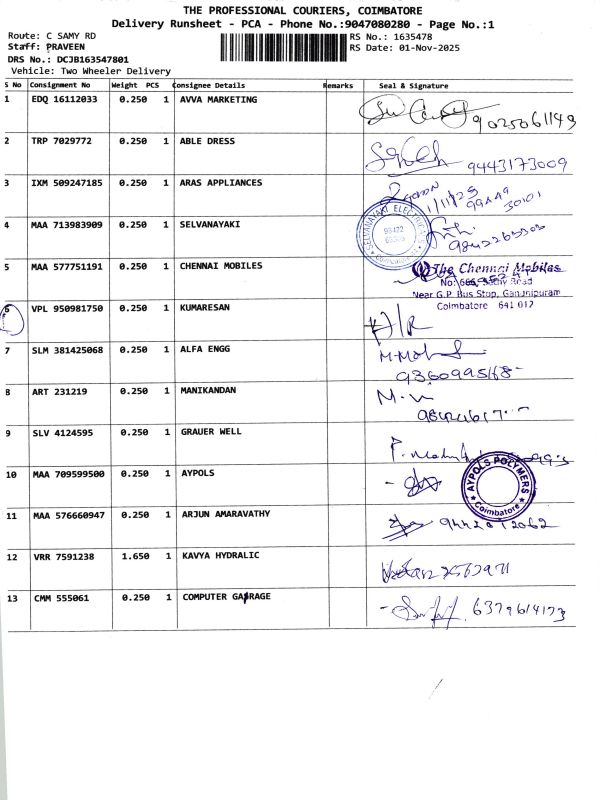 THE PROFESSIONAL COURIERS, COIMBATORE
Delivery Runsheet - PCA - Phone No.:9047080280 - Page No.:1
Route: C SAMY RD
RS No.: 1635478
Staff: PRAVEEN
RS Date: 01-Nov-2025
DRS No.: DCJB163547801
Vehicle: Two Wheeler Delivery
S No Consignment No Weight PCS Consignee Details Remarks Seal & Signature
1 EDQ 16112033 0.250 1 AVVA MARKETING
9025061149
2 TRP 7029772 0.250 1 ABLE DRESS
9443173009
3 IXM 509247185 0.250 1 ARAS APPLIANCES
1/11/25
30101
4 MAA 713983909 0.250 1 SELVANAYAKI
SELVANAYAKI ELECTRICAL
93422
Coimbatore
5 MAA 577751191 0.250 1 CHENNAI MOBILES
The Chennai Mobiles
No: Sathy Road
Near G.P. Bus Stop, Ganapathypuram
Coimbatore 641 012
6 VPL 950981750 0.250 1 KUMARESAN
7 SLM 381425068 0.250 1 ALFA ENGG
9360995168
8 ART 231219 0.250 1 MANIKANDAN
9 SLV 4124595 0.250 1 GRAUER WELL
10 MAA 709599500 0.250 1 AYPOLS
AYPOLS POLYMERS
Coimbatore
11 MAA 576660947 0.250 1 ARJUN AMARAVATHY
12 VRR 7591238 1.650 1 KAVYA HYDRALIC
13 CMM 555061 0.250 1 COMPUTER GARRAGE
6379614173